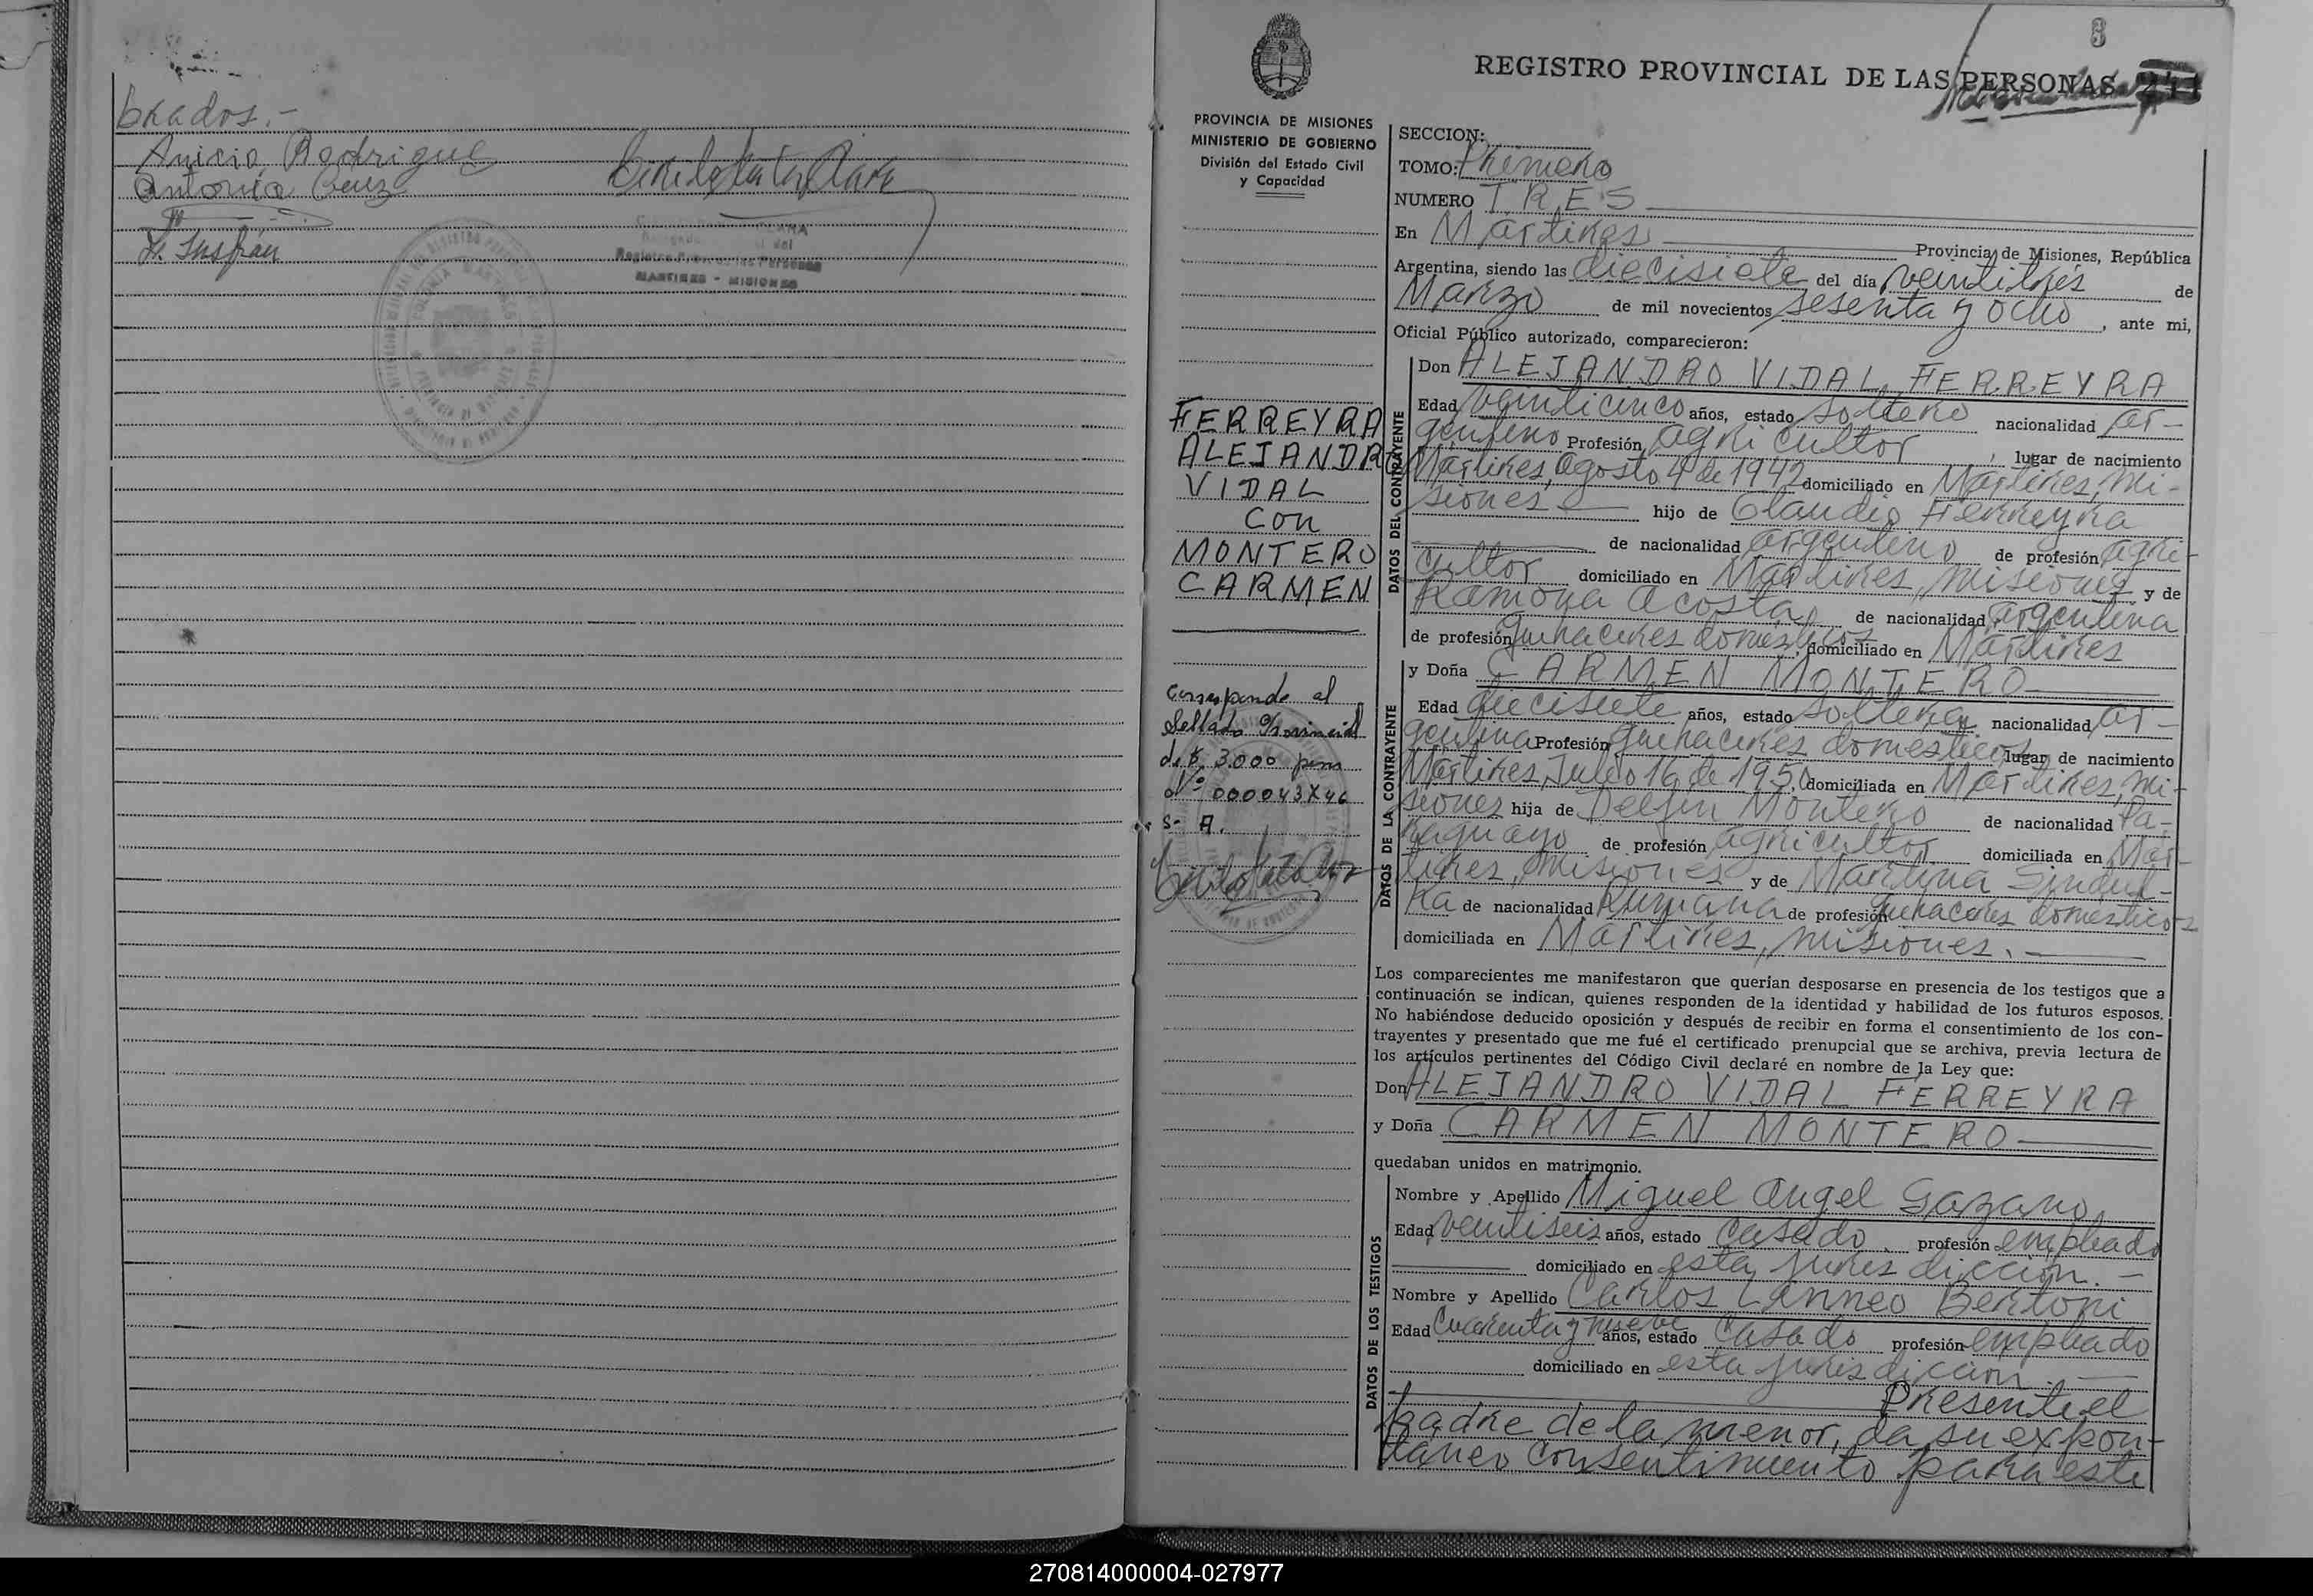 brados.-
Anicio Rodriguez
Antonia Cruz
REGISTRO PROVINCIAL DE LAS PERSONAS
8
PROVINCIA DE MISIONES
MINISTERIO DE GOBIERNO
División del Estado Civil
y Capacidad
FERREYRA
ALEJANDRO
VIDAL
con
MONTERO
CARMEN
Corresponde al
Sellado Provincial
de $ 3.000 pesos
Nº 000043846
S- A.
SECCION:
TOMO: Primero
NUMERO TRES
En Mártires Provincia de Misiones, República
Argentina, siendo las diecisiete del día veintitrés de
Marzo de mil novecientos sesenta y ocho, ante mi,
Oficial Público autorizado, comparecieron:
DATOS DEL CONTRAYENTE
Don ALEJANDRO VIDAL FERREYRA
Edad veinticinco años, estado soltero nacionalidad ar-
gentino Profesión agricultor, lugar de nacimiento
Mártires, agosto 4 de 1942 domiciliado en Mártires, Mi-
siones hijo de Claudio Ferreyra
de nacionalidad argentino de profesión agri-
cultor domiciliado en Mártires, Misiones y de
Ramona Acosta de nacionalidad argentina
de profesión quehaceres domésticos, domiciliado en Mártires
DATOS DE LA CONTRAYENTE
y Doña CARMEN MONTERO
Edad diecisiete años, estado soltera nacionalidad ar-
gentina Profesión quehaceres domesticos, lugar de nacimiento
Mártires, Julio 16 de 1950, domiciliada en Mártires, Mi-
siones hija de Delfin Montero de nacionalidad Pa-
raguayo de profesión agricultor domiciliada en Már-
tires, Misiones y de Martina
ra de nacionalidad Rumana de profesión quehaceres domesticos
domiciliada en Mártires, Misiones.
Los comparecientes me manifestaron que querían desposarse en presencia de los testigos que a
continuación se indican, quienes responden de la identidad y habilidad de los futuros esposos.
No habiéndose deducido oposición y después de recibir en forma el consentimiento de los con-
trayentes y presentado que me fué el certificado prenupcial que se archiva, previa lectura de
los artículos pertinentes del Código Civil declaré en nombre de la Ley que:
Don ALEJANDRO VIDAL FERREYRA
y Doña CARMEN MONTERO
quedaban unidos en matrimonio.
DATOS DE LOS TESTIGOS
Nombre y Apellido Miguel Angel Gazano
Edad veintiseis años, estado casado profesión empleado
domiciliado en esta jurisdicción.
Nombre y Apellido Carlos Linneo Bertoni
Edad Cuarenta y nueve años, estado casado profesión empleado
domiciliado en esta jurisdicción.
Presente el
padre de la menor, da su expon-
táneo consentimiento para este
270814000004-027977